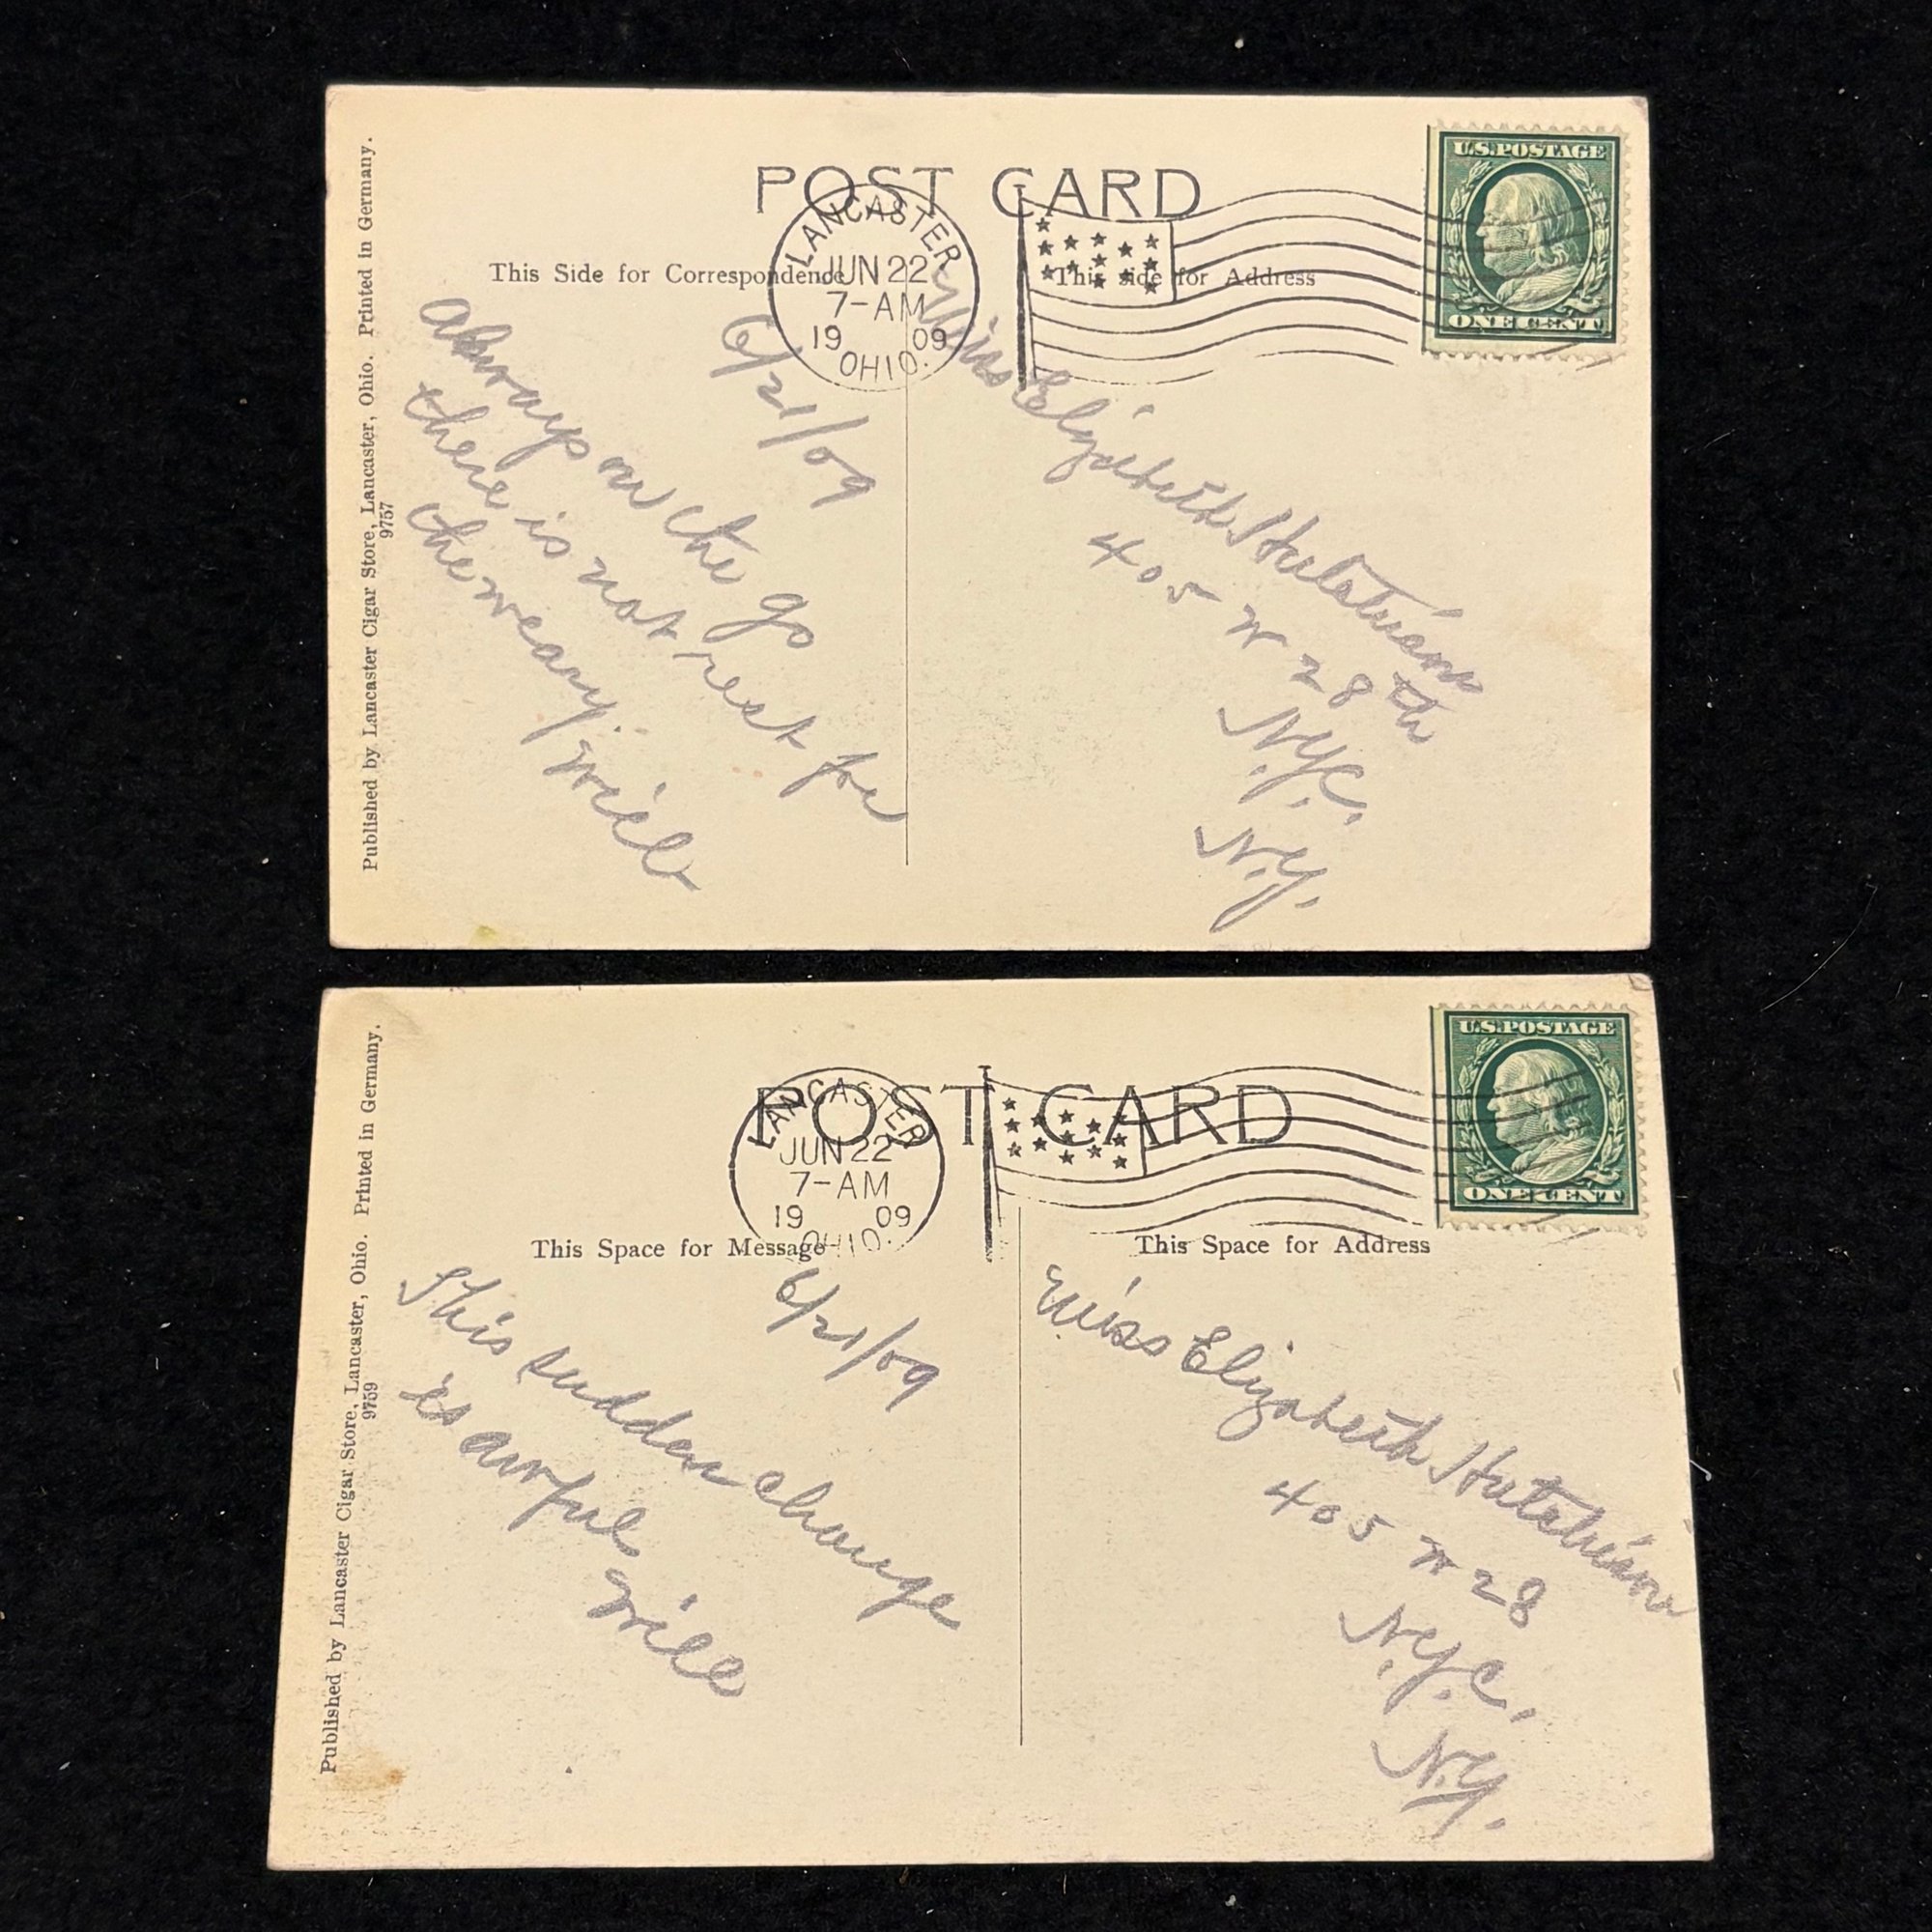 POST CARD
LANCASTER
JUN 22
7-AM
19 09
OHIO.
U.S. POSTAGE
ONE CENT
This Side for Correspondence
This side for Address
6/21/09
always on the go
there is not rest for
the weary.
Will
Miss Elizabeth Hutchins
405 W 28th
N.Y.C.
N.Y.
Published by Lancaster Cigar Store, Lancaster, Ohio. Printed in Germany.
9757
POST CARD
LANCASTER
JUN 22
7-AM
19 09
OHIO.
U.S. POSTAGE
ONE CENT
This Space for Message
This Space for Address
6/21/09
This sudden change
is awful
Will
Miss Elizabeth Hutchins
405 W 28
N.Y.C.
N.Y.
Published by Lancaster Cigar Store, Lancaster, Ohio. Printed in Germany.
9759